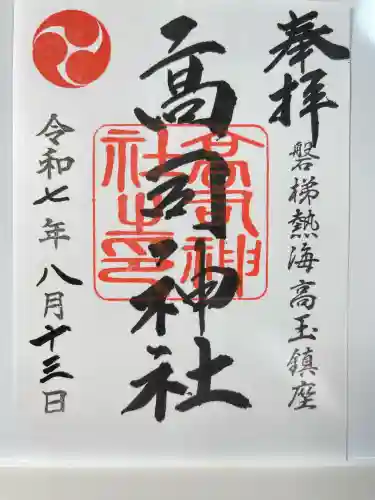 奉拝
磐梯熱海高玉鎮座
高司神社
令和七年八月十三日